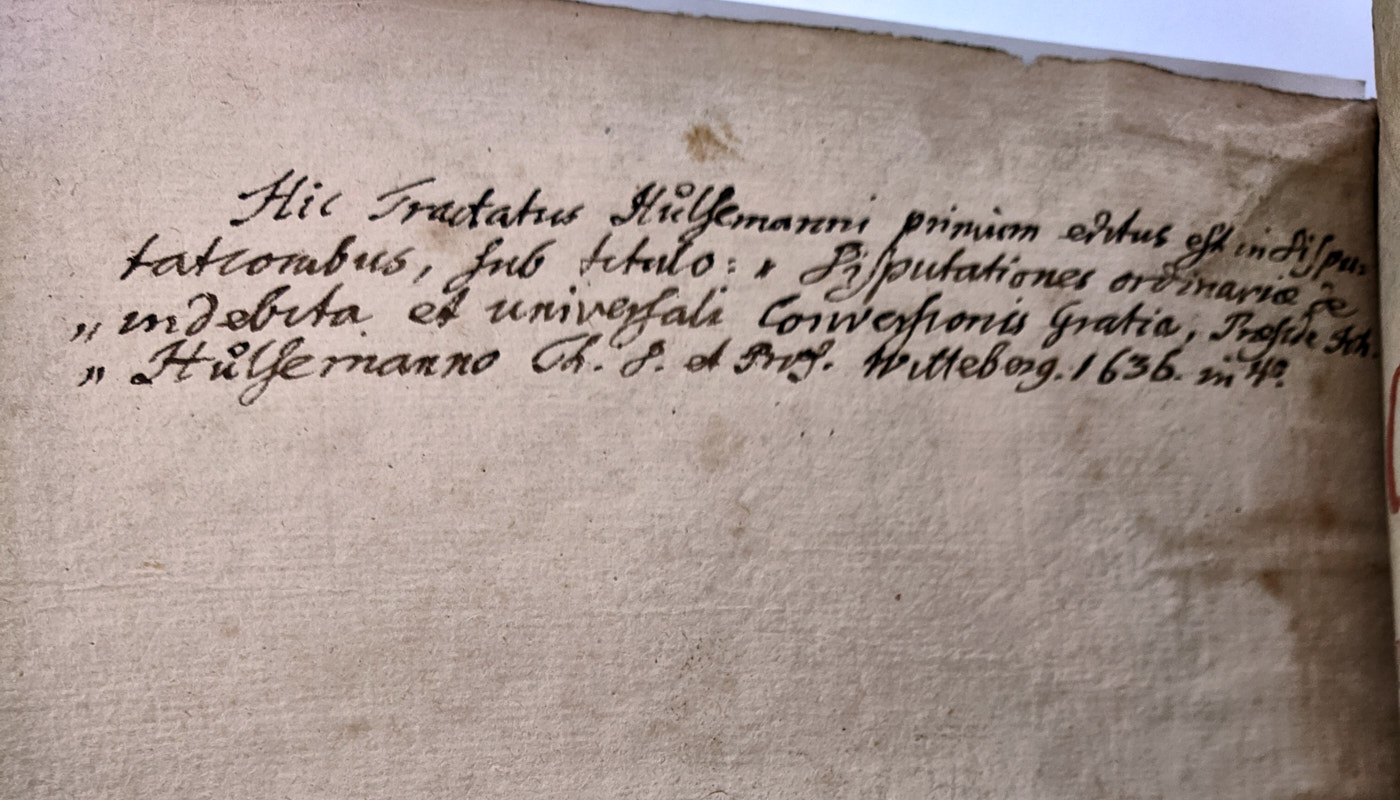 Hic Tractatus Hůlsemanni primùm editus est in Dispu-
tationibus, sub titulo: „ Disputationes ordinariæ de
„ indebita et universali Conversionis Gratia, Præside Joh.
„ Hůlsemanno Th. D. et Prof. Witteberg. 1636. in 4º.